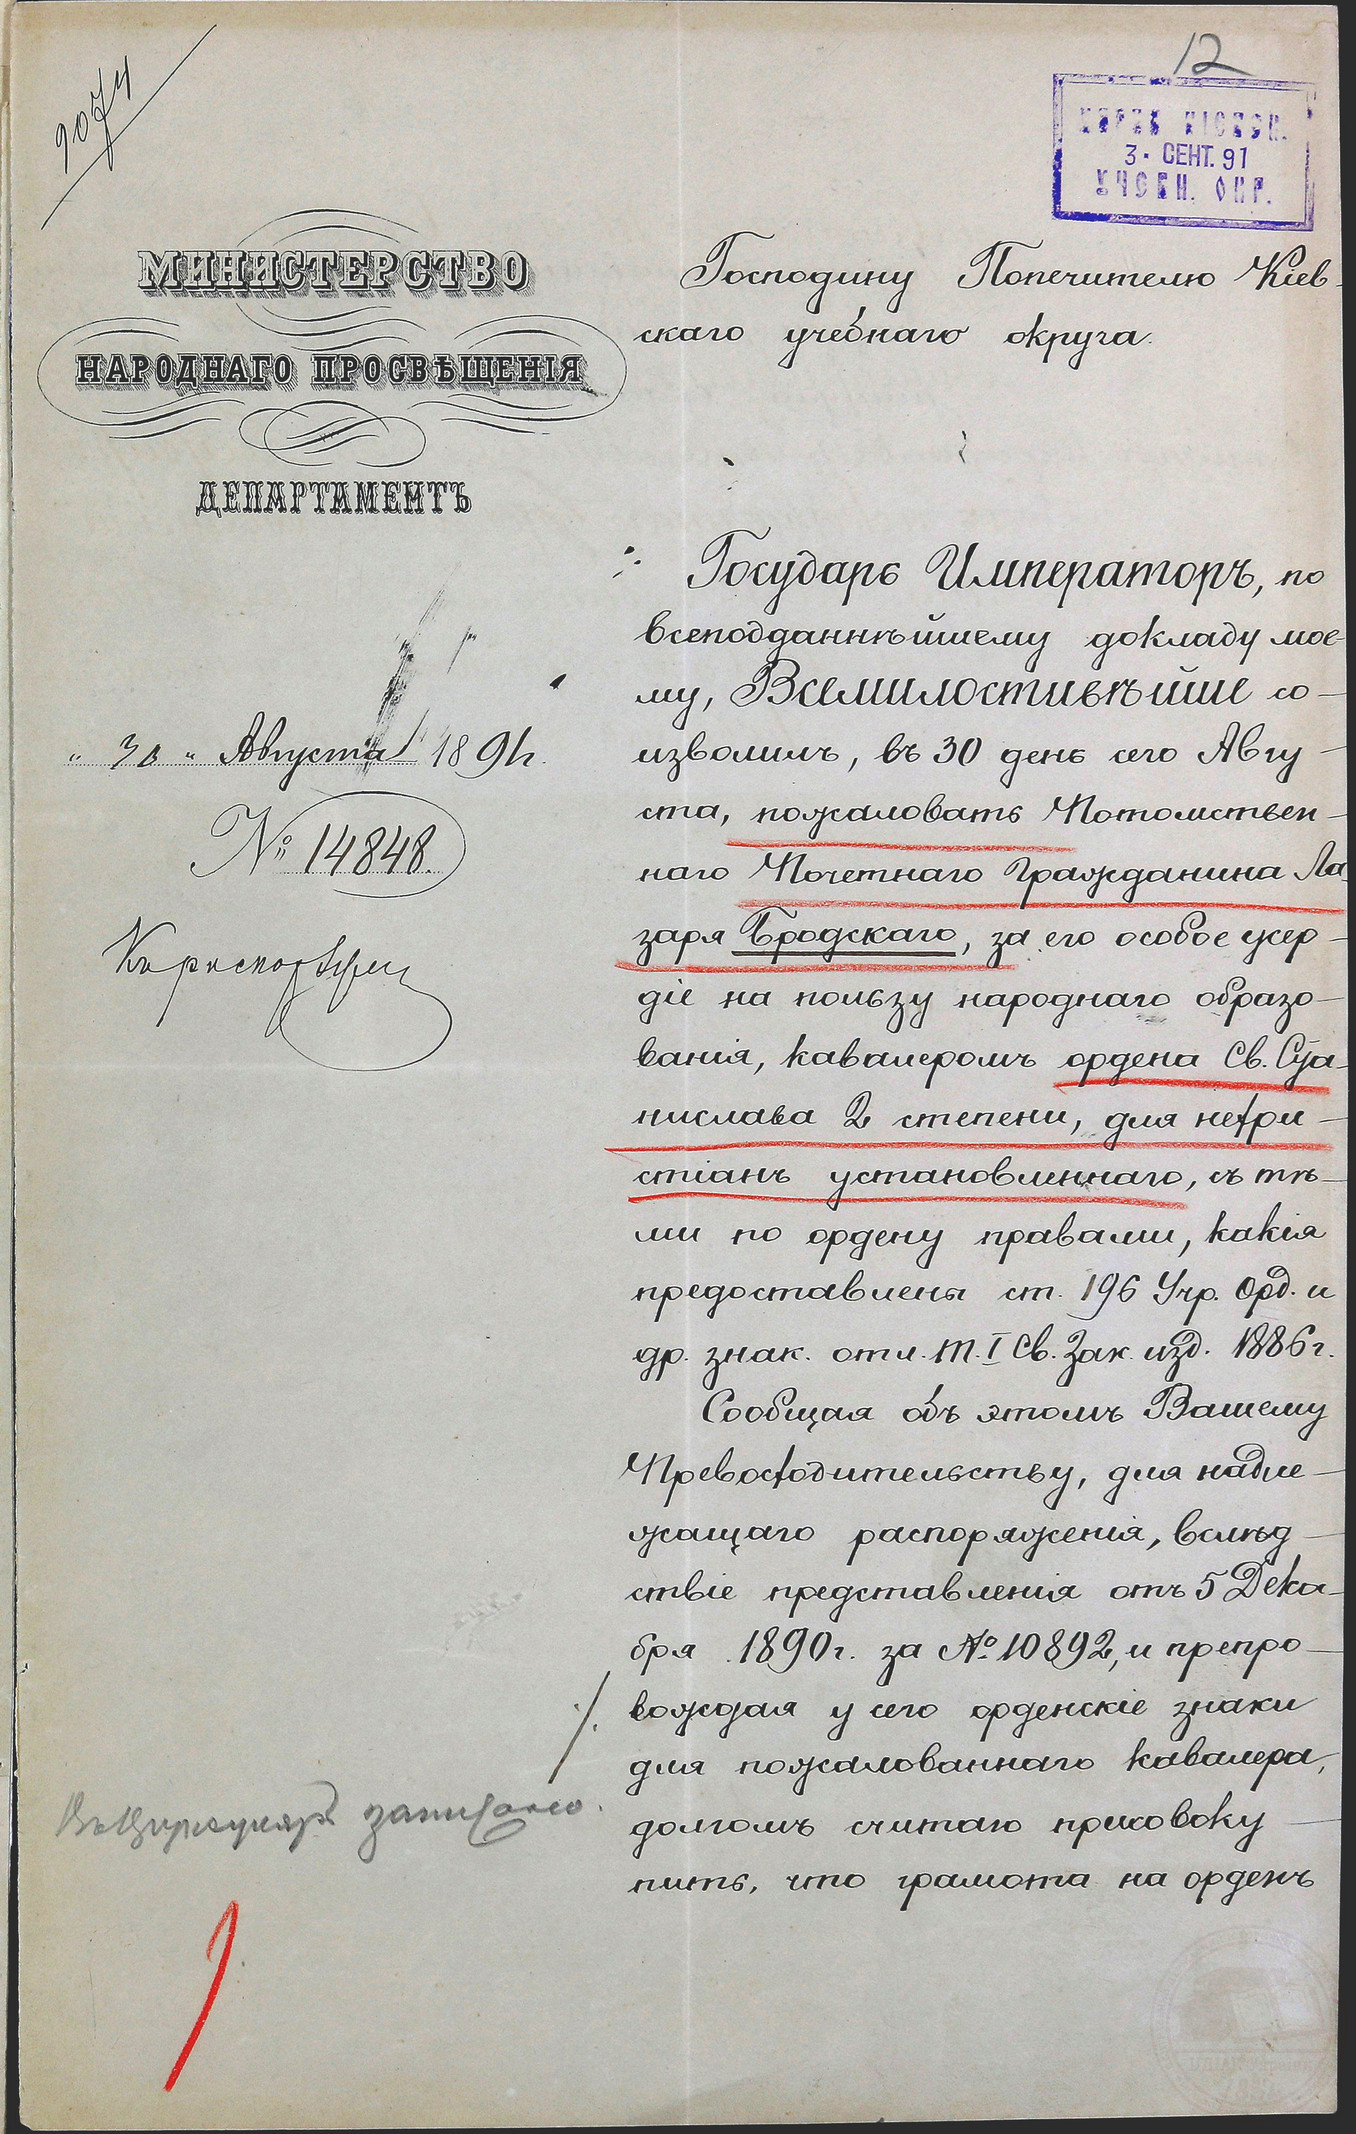 9074
12
3 · СЕНТ. 91
УЧЕБН. ОКР.
МИНИСТЕРСТВО
НАРОДНАГО ПРОСВѢЩЕНІЯ
ДЕПАРТАМЕНТЪ
„ 30 „ Августа 1891 г.
№ 14848.
Господину Попечителю Кіев-
скаго учебнаго округа.
Государь Императоръ, по
всеподданнѣйшему докладу мое-
му, Всемилостивѣйше со-
изволилъ, въ 30 день сего Авгу-
ста, пожаловать Потомствен-
наго Почетнаго Гражданина Ла-
заря Бродскаго, за его особое усер-
діе на пользу народнаго образо-
ванія, кавалеромъ ордена Св. Ста-
нислава 2 степени, для нехри-
стіанъ установленнаго, съ тѣ-
ми по ордену правами, какія
предоставлены ст. 196 Учр. Орд. и
др. знак. отл. т. I Св. Зак. изд. 1886 г.
Сообщая объ этомъ Вашему
Превосходительству, для надле-
жащаго распоряженія, вслѣд-
ствіе представленія отъ 5 Дека-
бря 1890 г. за № 10892, и препро-
вождая у сего орденскіе знаки
для пожалованнаго кавалера,
долгомъ считаю присовоку-
пить, что грамота на орденъ
Въ Циркуляръ записано.